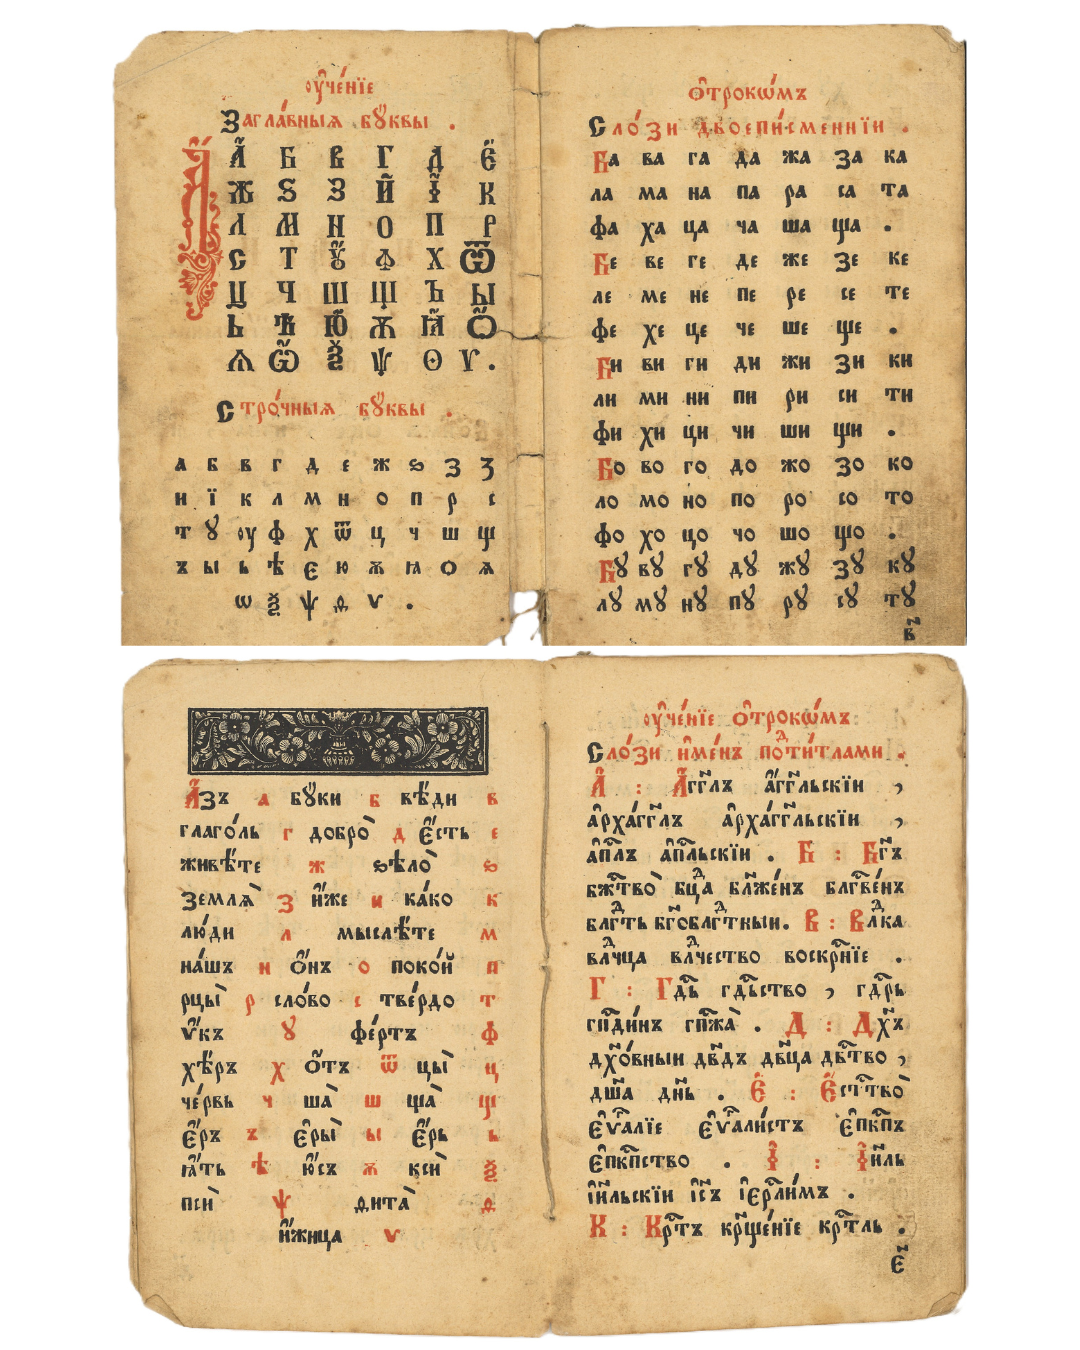 оу҆че́нїе
Загла́вныѧ бꙋ́квы .
А҆́ Б В Г Д Е҆́
Ж Ѕ З И҆ І҆ К
Л М Н О П Р
С Т Ꙋ҆́ Ф Х Ѿ
Ц Ч Ш Щ Ъ Ы
Ь Ѣ Ю҆ Ѫ Ꙗ҆ Ѻ҆
Ѧ Ѽ Ѯ Ѱ Ѳ Ѵ .
Стро́чныѧ бꙋ́квы .
а б в г д е ж ѕ з ꙁ
и ї к л м н о п р с
т ꙋ оу ф х ѿ ц ч ш щ
ъ ы ь ѣ є ю ѫ ꙗ ѻ ѧ
ѡ ѯ ѱ ѳ ѵ .
ѻ҆трокѡ́мъ
Сло́зи двоепи́сменнїи .
Ба ва га да жа за ка
ла ма на па ра са та
фа ха ца ча ша ща .
Бе ве ге де же зе ке
ле ме не пе ре се те
фе хе це че ше ще .
Би ви ги ди жи зи ки
ли ми ни пи ри си ти
фи хи ци чи ши щи .
Бо во го до жо зо ко
ло мо но по ро со то
фо хо цо чо шо що .
Бꙋ вꙋ гꙋ дꙋ жꙋ зꙋ кꙋ
лꙋ мꙋ нꙋ пꙋ рꙋ сꙋ тꙋ
в҃
А҆́зъ а бꙋ́ки б вѣ́ди в
глаго́ль г добро̀ д є҆́сть е
живѣ́те ж ѕѣло̀ ѕ
землѧ̀ з и҆́же и ка́ко к
лю́ди л мыслѣ́те м
на́шъ н ѻ҆́нъ о поко́й п
рцы̀ р сло́во с тве́рдо т
ѵ҆́къ ꙋ фе́ртъ ф
хѣ́ръ х ѻ҆́тъ ѿ цы̀ ц
че́рвь ч ша̀ ш ща̀ щ
є҆́ръ ъ є҆ры̀ ы є҆́рь ь
ꙗ҆́ть ѣ ю҆́съ ѫ ксѝ ѯ
псѝ ѱ ѳита̀ ѳ
и҆́жица ѵ
оу҆че́нїе ѻ҆трокѡ́мъ
Сло́зи и҆ме́нъ подти́тлами .
А҆ : А҆́гг҃лъ а҆́гг҃льскїи ,
а҆рха́гг҃лъ а҆рха́гг҃льскїи ,
а҆п҃лъ а҆п҃льскїи . Б : Бг҃ъ
бж҃тво̀ бцⷣа бл҃же́нъ блг҃ве́нъ
блгⷣть бг҃облгⷣтныи. В : Влⷣка
влⷣчца влⷣчество воскр҃нїе .
Г : Гд҃ь гд҃ьство , гд҃рь
гп҃ди́нъ гп҃жа̀ . Д : Дх҃ъ
дх҃о́вныи дв҃дъ дв҃ца дв҃тво ,
дш҃а дн҃ь . Е҆ : Е҆ст҃тво̀
є҆ѵ҃алїе є҆ѵ҃али́стъ є҆пк҃пъ
є҆пк҃пство . І҆ : І҆и҃ль
і҆и҃льскїи і҆с҃ъ і҆ер҃ли́мъ .
К : Кр҃тъ кр҃ще́нїе кр҃тль .
є҃